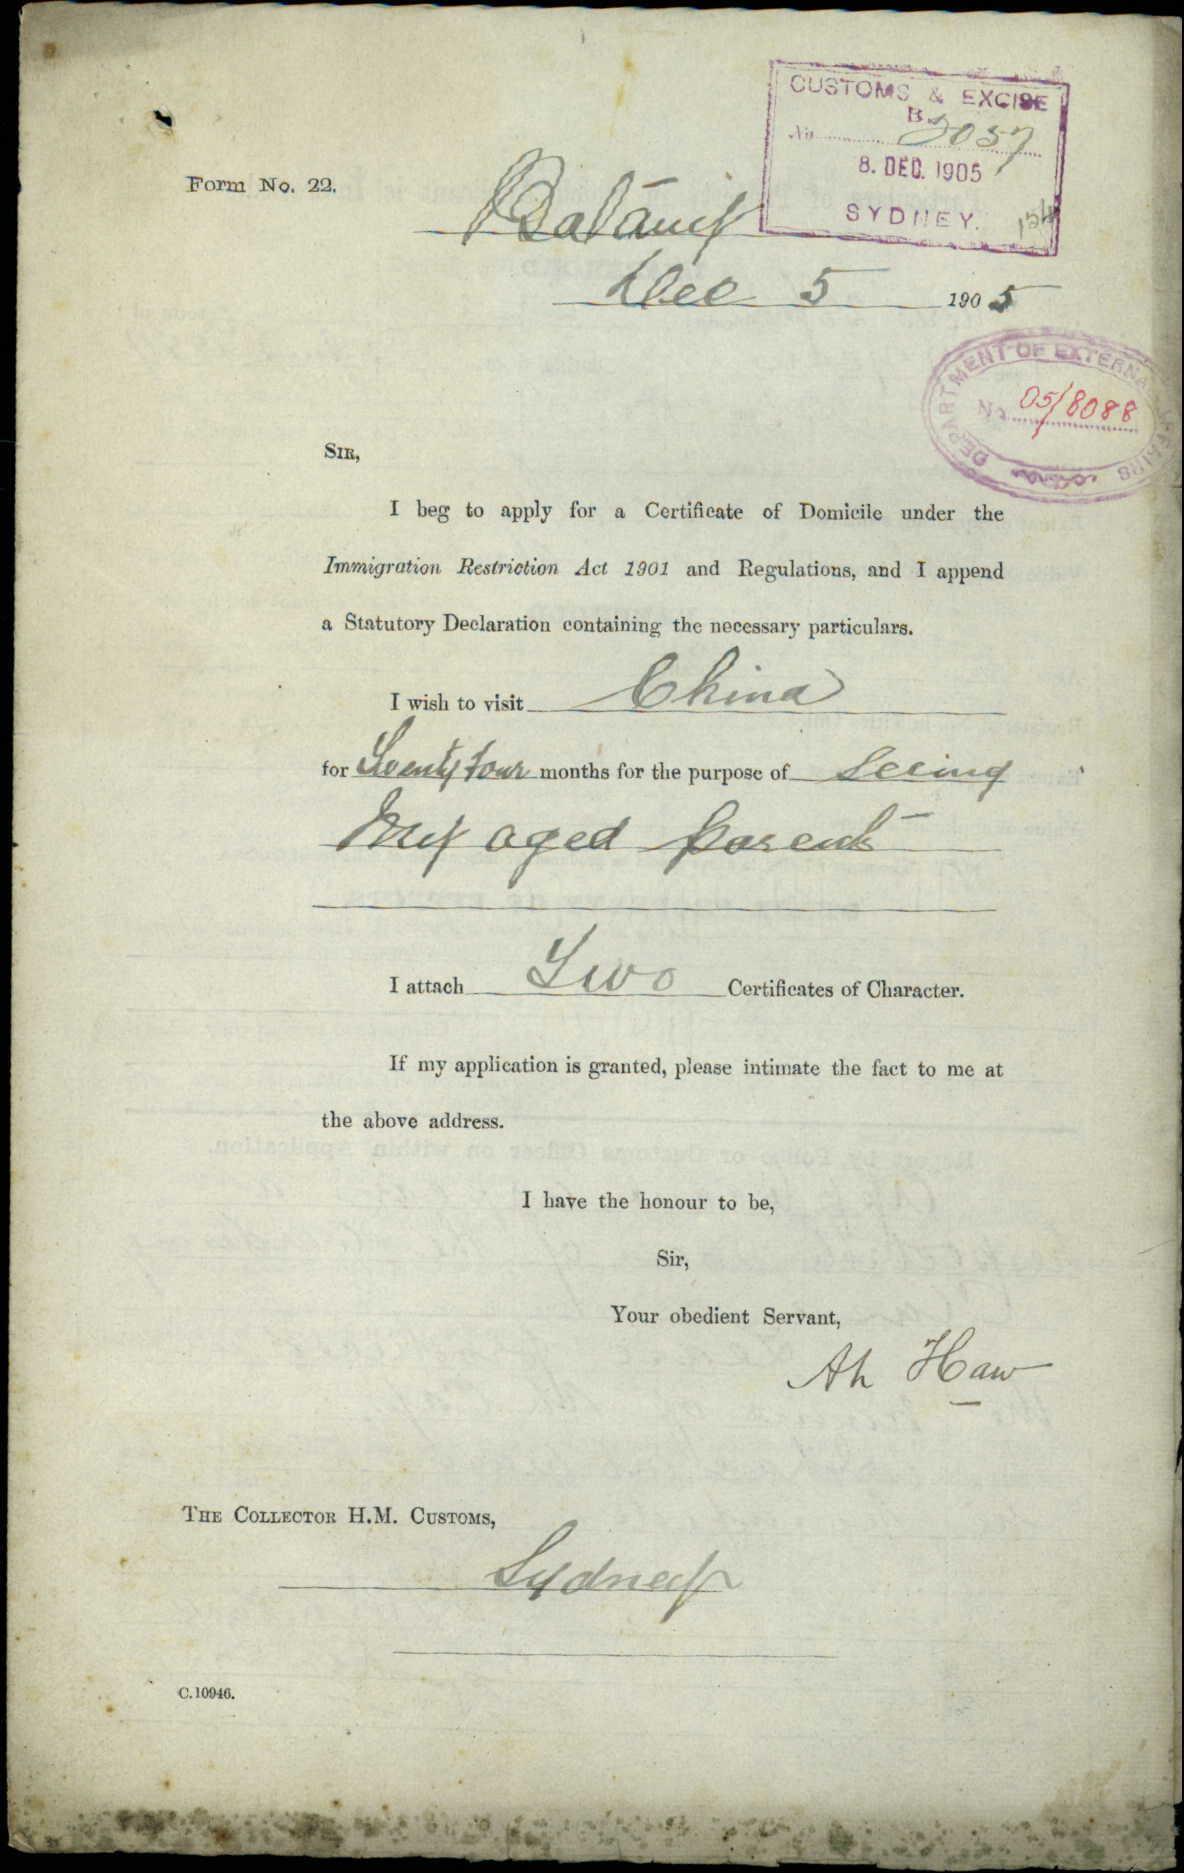 CUSTOMS & EXCISE
B
No. 2057
8. DEC. 1905
SYDNEY.
Form No. 22.
Botany
Dec 5 1905
DEPARTMENT OF EXTERNAL AFFAIRS
No. 05/8088
SIR,
I beg to apply for a Certificate of Domicile under the
Immigration Restriction Act 1901 and Regulations, and I append
a Statutory Declaration containing the necessary particulars.
I wish to visit China
for Twenty four months for the purpose of Seeing
My aged Parents
I attach Two Certificates of Character.
If my application is granted, please intimate the fact to me at
the above address.
I have the honour to be,
Sir,
Your obedient Servant,
Ah Haw
THE COLLECTOR H.M. CUSTOMS,
Sydney
C.10946.